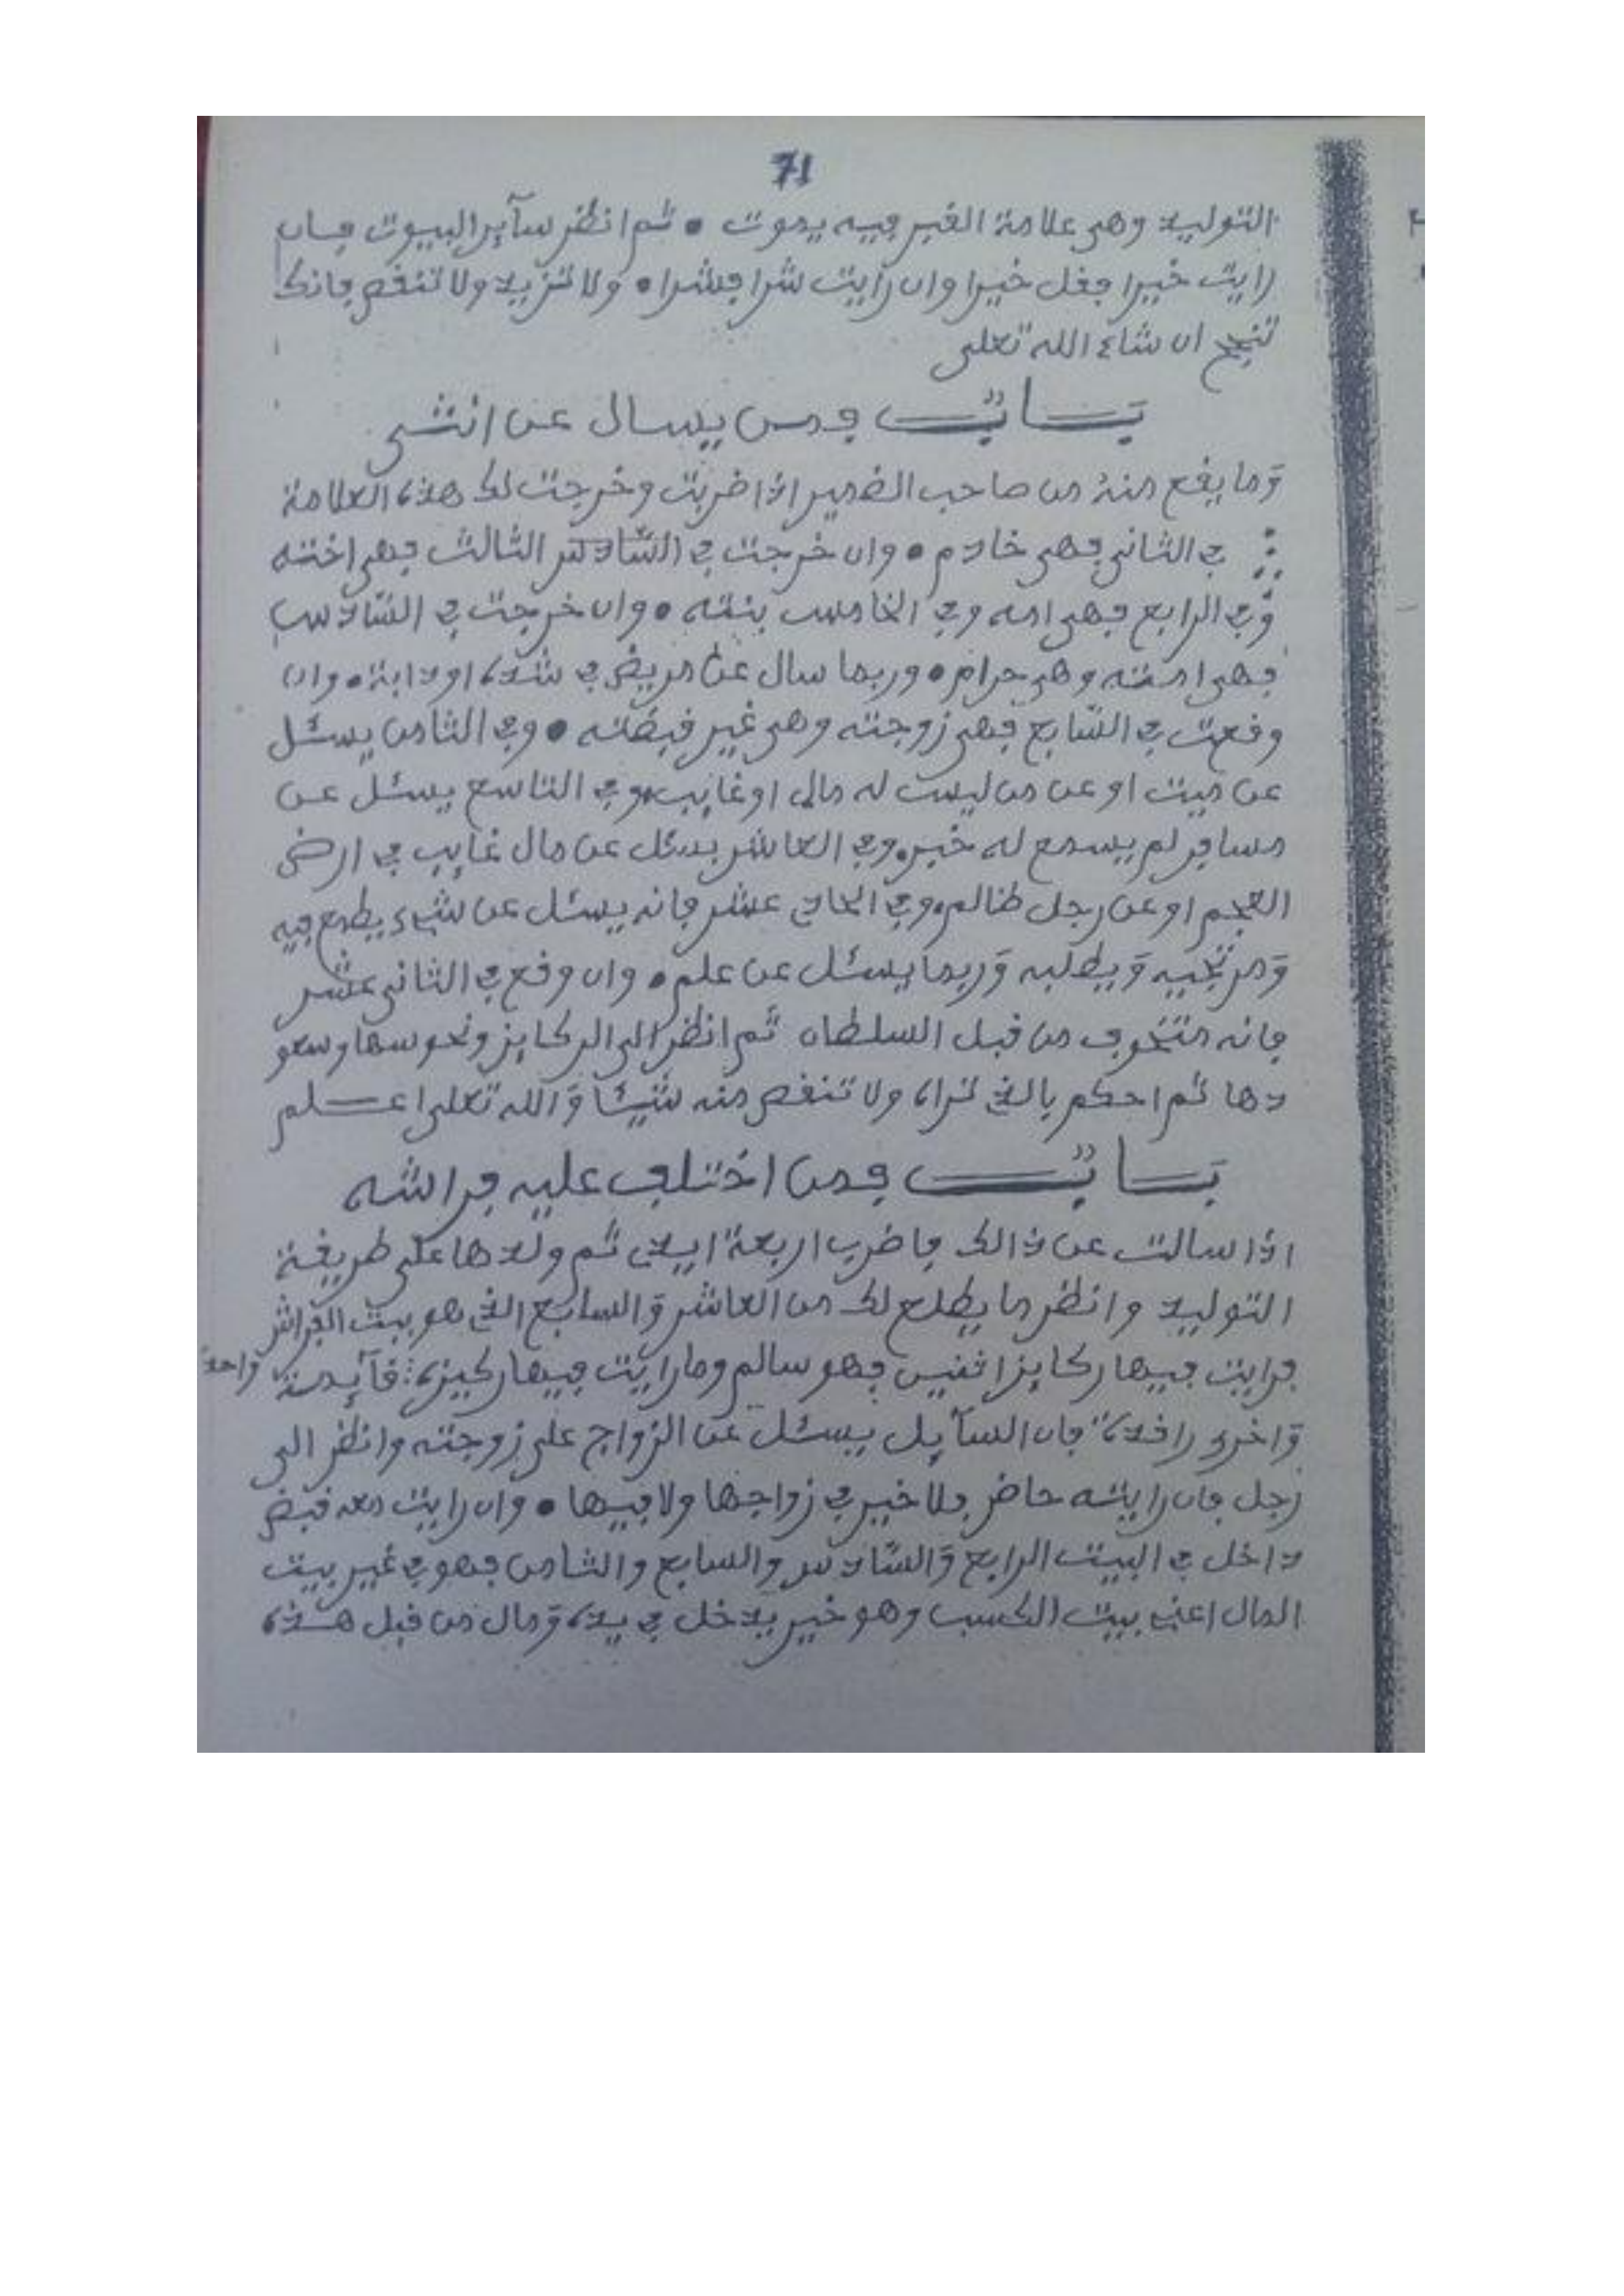 71
التوليد وهى علامة القبر فيه يموت • ثم انظر سآير البيوت فان
رايت خيرا فقل خيرا وان رايت شرا فشرا • ولا تزيد ولا تنقص فانك
تنجح ان شاء الله تعلى
بَـــابٌ فمن يسال عن انثى
وَما يقع منهُ من صاحب الضمير اذا ضربت وخرجت لك هذه العلامة
في الثانى فهى خادم • وان خرجت في السّادس الثالث فهى اخته
وَفي الرابع فهى امه وفي الخامس بنته • وان خرجت في السّادس
فهى امته وهى حرام • وربما سال عن مريض في شدة او دابة • وان
وقعت في السّابع فهى زوجته وهى غير قبضته • وفي الثامن يسئل
عن ميت او عن من ليست له مال او غايب • وفي التاسع يسئل عن
مسافر لم يسمع له خبر • وفي العاشر يسئل عن مال غايب في ارض
العجم او عن رجل ظالم • وفي الحادي عشر فانه يسئل عن شيء يطمع فيه
وَمرتجيه وَيطلبه وَربما يسئل عن علم • وان وقع في الثانى عشر
فانه متخوف من قبل السلطان ثم انظر الى الركايز ونحوسها وسعو
دها ثم احكم بالذي تراه ولا تنقص منه شيئا وَالله تعلى اعـــلم
بَـــابٌ فمن اختلف عليه فراشه
اذا سالت عن ذالك فاضرب اربعة ايدي ثم ولدها على طريقة
التوليد وانظر ما يطلع لك من العاشر وَالسابع الذي هو بيت الفراش
فرايت فيها ركايز اثنين فهو سالم وما رايت فيها ركيزة قآيمة واحدة
وَاخرى راقدة فان السآيل يسئل عن الزواج على زوجته وانظر الى
رجل فان رايته حاضر فلا خير في زواجها ولا فيها • وان رايت معه قبض
داخل في البيت الرابع وَالسّادس والسابع والثامن فهو في غير بيت
المال اعني بيت الكسب وهو خير يدخل في يده وَمال من قبل هـذه